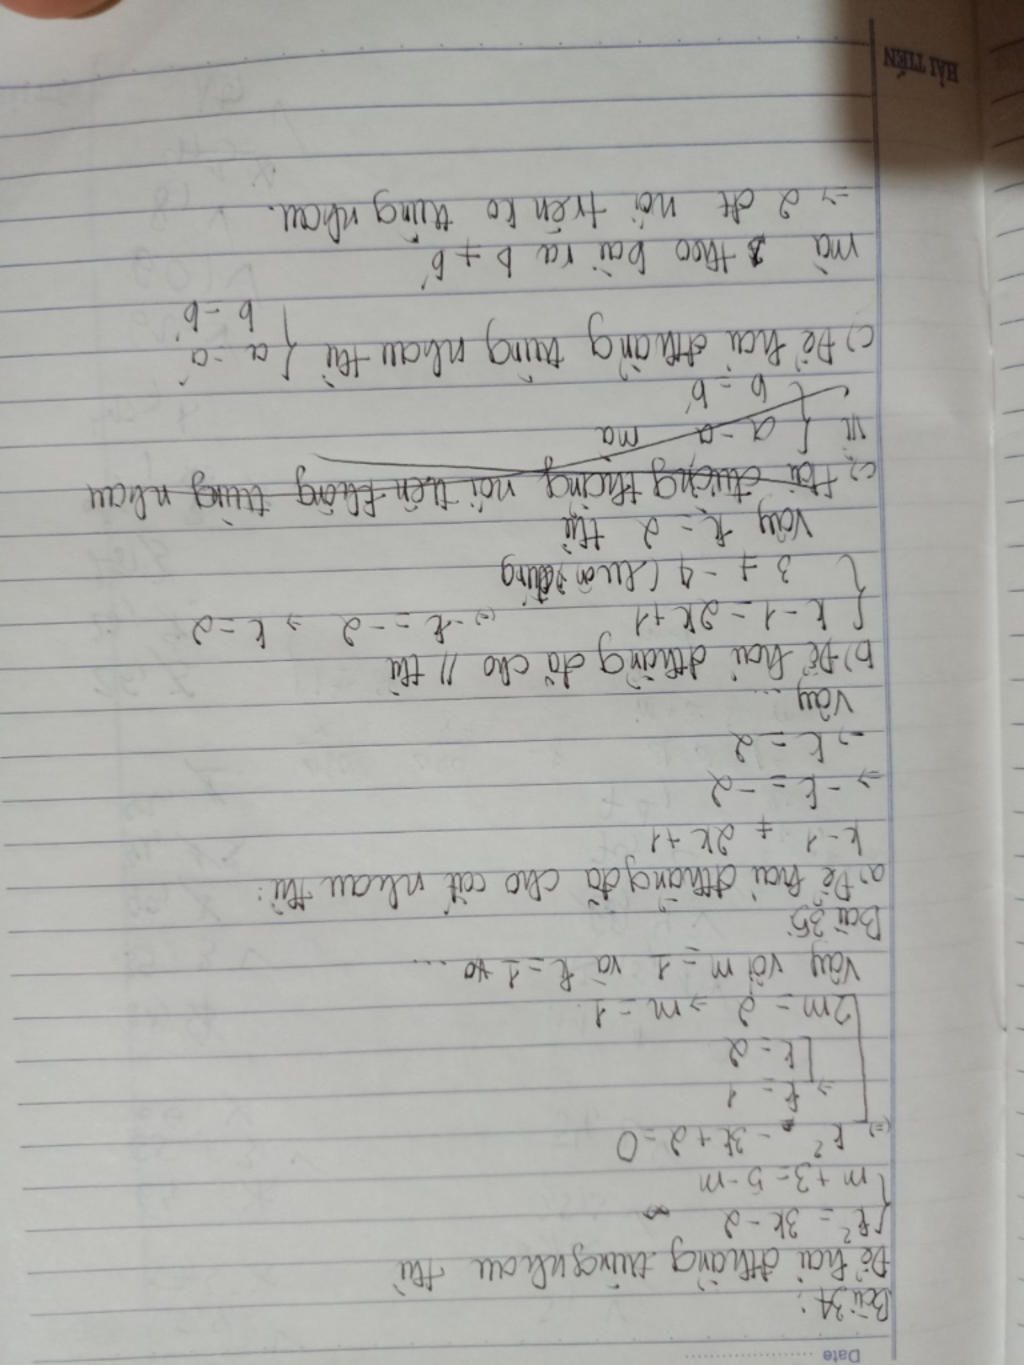 Date
Bài 34:
Để hai đthẳng trùng nhau thì
{ k² = 3k - 2
{ m + 3 = 5 - m
(=) k² - 3k + 2 = 0
⇒ [ k = 1
[ k = 2
2m = 2 ⇒ m = 1.
Vậy với m = 1 và k = 1 ...
Bài 35
a, Để hai đthẳng đã cho cắt nhau thì:
k - 1 ≠ 2k + 1
⇒ - k = - 2
⇒ k = 2
Vậy ...
b) Để hai đthẳng đã cho // thì
{ k - 1 = 2k + 1 (=) - k = - 2 ⇒ k = 2
{ 3 ≠ - 4 (luôn đúng
Vậy k = 2 thì
c, Hai đường thẳng nói trên không trùng nhau
vì { a = a mà
{ b = b'
c) Để hai đthẳng trùng nhau thì { a = a'
{ b = b'
mà theo bài ra b ≠ b'
⇒ 2 đt nói trên ko trùng nhau.
HẢI TIẾN